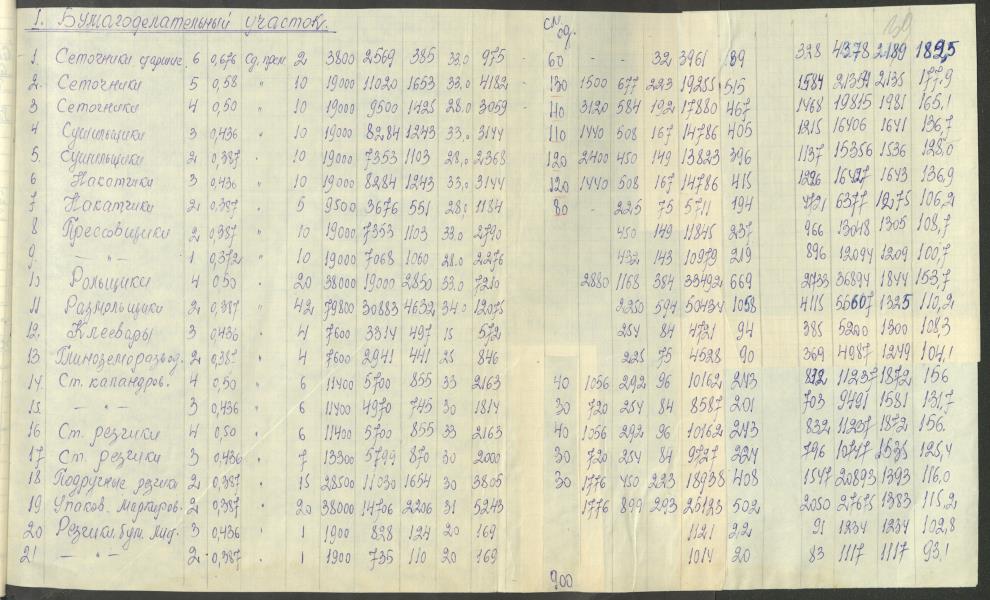 1. Бумагоделательный участок.
сн. од.
1. Сеточники старшие 6 0,676 Сд. прем 2 3800 2569 385 33,0 975 - 60 - - 32 3961 89 328 4378 2189 182,5
2. Сеточники 5 0,58 " 10 19000 11020 1653 33,0 4182 - 130 1500 677 223 19255 515 1584 21354 2135 177,9
3 Сеточники 4 0,50 " 10 19000 9500 1425 28,0 3059 - 110 3120 584 192 17880 467 1468 19815 1981 165,1
4 Сушильщики 3 0,436 " 10 19000 8284 1243 33,0 3144 110 1440 508 167 14786 405 1215 16406 1641 136,7
5. Сушильщики 2 0,387 " 10 19000 7353 1103 28,0 2368 120 2400 450 149 13823 396 1137 15356 1536 128,0
6 Накатчики 3 0,436 " 10 19000 8284 1243 33,0 3144 120 1440 508 167 14786 415 1226 16427 1643 136,9
7 Накатчики 2 0,387 " 5 9500 3676 551 28,0 1184 80 - 225 75 5711 194 472 6377 1275 106,2
8 Прессовщики 2 0,387 " 10 19000 7353 1103 33,0 2790 450 149 11845 237 966 13048 1305 108,7
9 — " — 1 0,372 " 10 19000 7068 1060 28.0 2276 432 143 10979 219 896 12094 1209 100,7
10 Рольщики 4 0,50 " 20 38000 19000 2850 33.0 7210 2880 1168 384 33492 669 2733 36894 1844 153,7
11 Размольщики 2 0,387 " 42 79800 30883 4632 34.0 12075 2250 594 50434 1058 4115 55607 1325 110,2
12. Клеевары 3 0,436 " 4 7600 3314 497 15 572 254 84 4721 94 385 5200 1300 108,3
13 Глиноземоразвод. 2 0,387 " 4 7600 2941 441 25 846 225 75 4528 90 369 4987 1249 104,1
14. Ст. каландров. 4 0,50 " 6 11400 5700 855 33 2163 40 1056 292 96 10162 243 832 11237 1872 156
15. — " — 3 0,436 " 6 11400 4970 745 30 1814 30 720 254 84 8587 201 703 9491 1581 131,7
16 Ст. резчики 4 0,50 " 6 11400 5700 855 33 2163 40 1056 292 96 10162 243 832 11237 1872 156.
17 Ст. резчики 3 0,436 " 7 13300 5799 870 30 2000 30 720 254 84 9727 224 796 10747 1535 128,4
18 Подручные резчика 2 0,387 " 15 28500 11030 1654 30 3805 30 1776 450 223 18938 408 1547 20893 1393 116,0
19 Упаков. маркиров. 2 0,387 " 20 38000 14706 2206 31 5243 1776 899 293 25123 502 2050 27675 1383 115,2
20 Резчики бум. 3 0,436 " 1 1900 828 124 20 169 1121 22 91 1234 1234 102,8
21 — " — 2 0,387 " 1 1900 735 110 20 169 1014 20 83 1117 1117 93,1
900